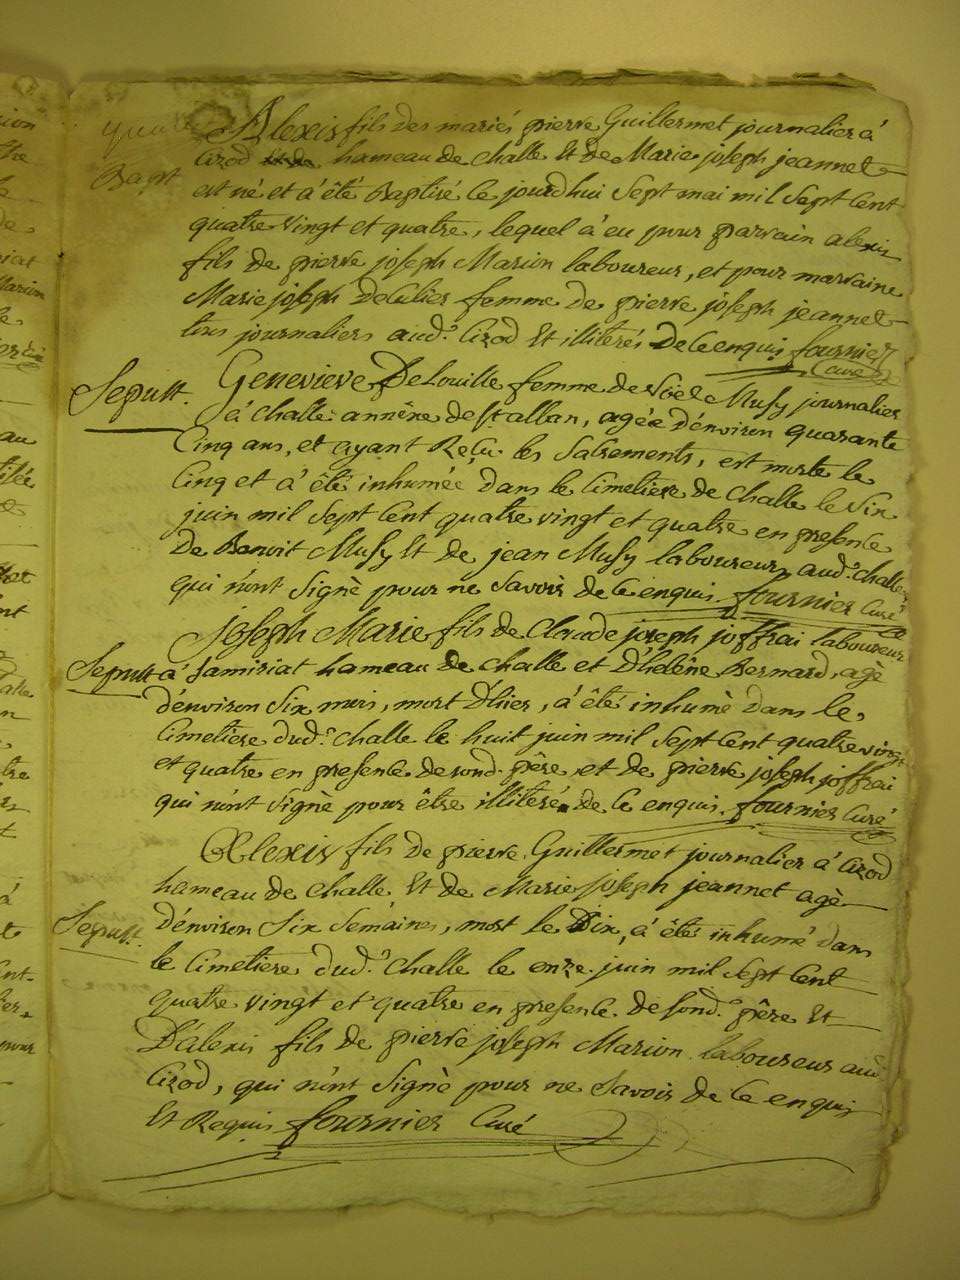 quatre
Bapt
Alexis fils des mariés pierre Guillermet journalier à
Cizod hameau de challe Et de Marie joseph jeannet
est né et à été Baptisé le jourdhui Sept mai mil Sept Cent
quatre Vingt et quatre, lequel à eu pour parvain alexis
fils de pierre joseph Marion laboureur, et pour marvaine
Marie joseph Deculier femme de pierre joseph jeannet
tous journaliers aud.t Cizod Et illitérés De Ce enquis fournier
Curé
Sepult.
Genevieve Delouille femme de Noël Musy journalier
à Challe annéxe de st allban, agée d'énviron quarante
Cinq ans, et ayant Reçu les Sacrements, est morte le
Cinq et à été inhumée dans le Cimetiere de Challe le Six
juin mil Sept Cent quatre vingt et quatre en presence
De Benoit Musy Et de jean Musy laboureurs aud.t Challe
qui n'ont Signé pour ne Savoir de Ce enquis fournier Curé
Joseph Marie fils de Claude joseph joffrai laboureur
Sepult à hameau de Challe et D'heléne Bernard, agé
d'énviron Six mois, mort D'hier, à été inhumé dans le
Cimetiere dud.t Challe le huit juin mil Sept Cent quatre vingt
et quatre en presence de sond. pére et de pierre joseph joffrai
qui n'ont Signé pour être illitéré de Ce enquis. fournier Curé
Alexis fils de pierre Guillermet journalier à Cizod
hameau de Challe Et de Marie joseph jeannet agé
Sepult.
d'énviron Six Semaines, mort le Dix, à été inhumé dans
le Cimetiere dud.t Challe le onze juin mil Sept Cent
quatre vingt et quatre en presence de sond. pére Et
D'aléxis fils de pierre joseph Marion laboureur aud
Cizod, qui n'ont Signé pour ne Savoir de Ce enquis
Et Requis fournier Curé